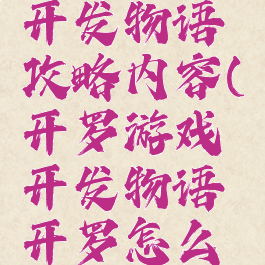 开发物语
攻略内容(
开罗游戏
开发物语
开罗怎么